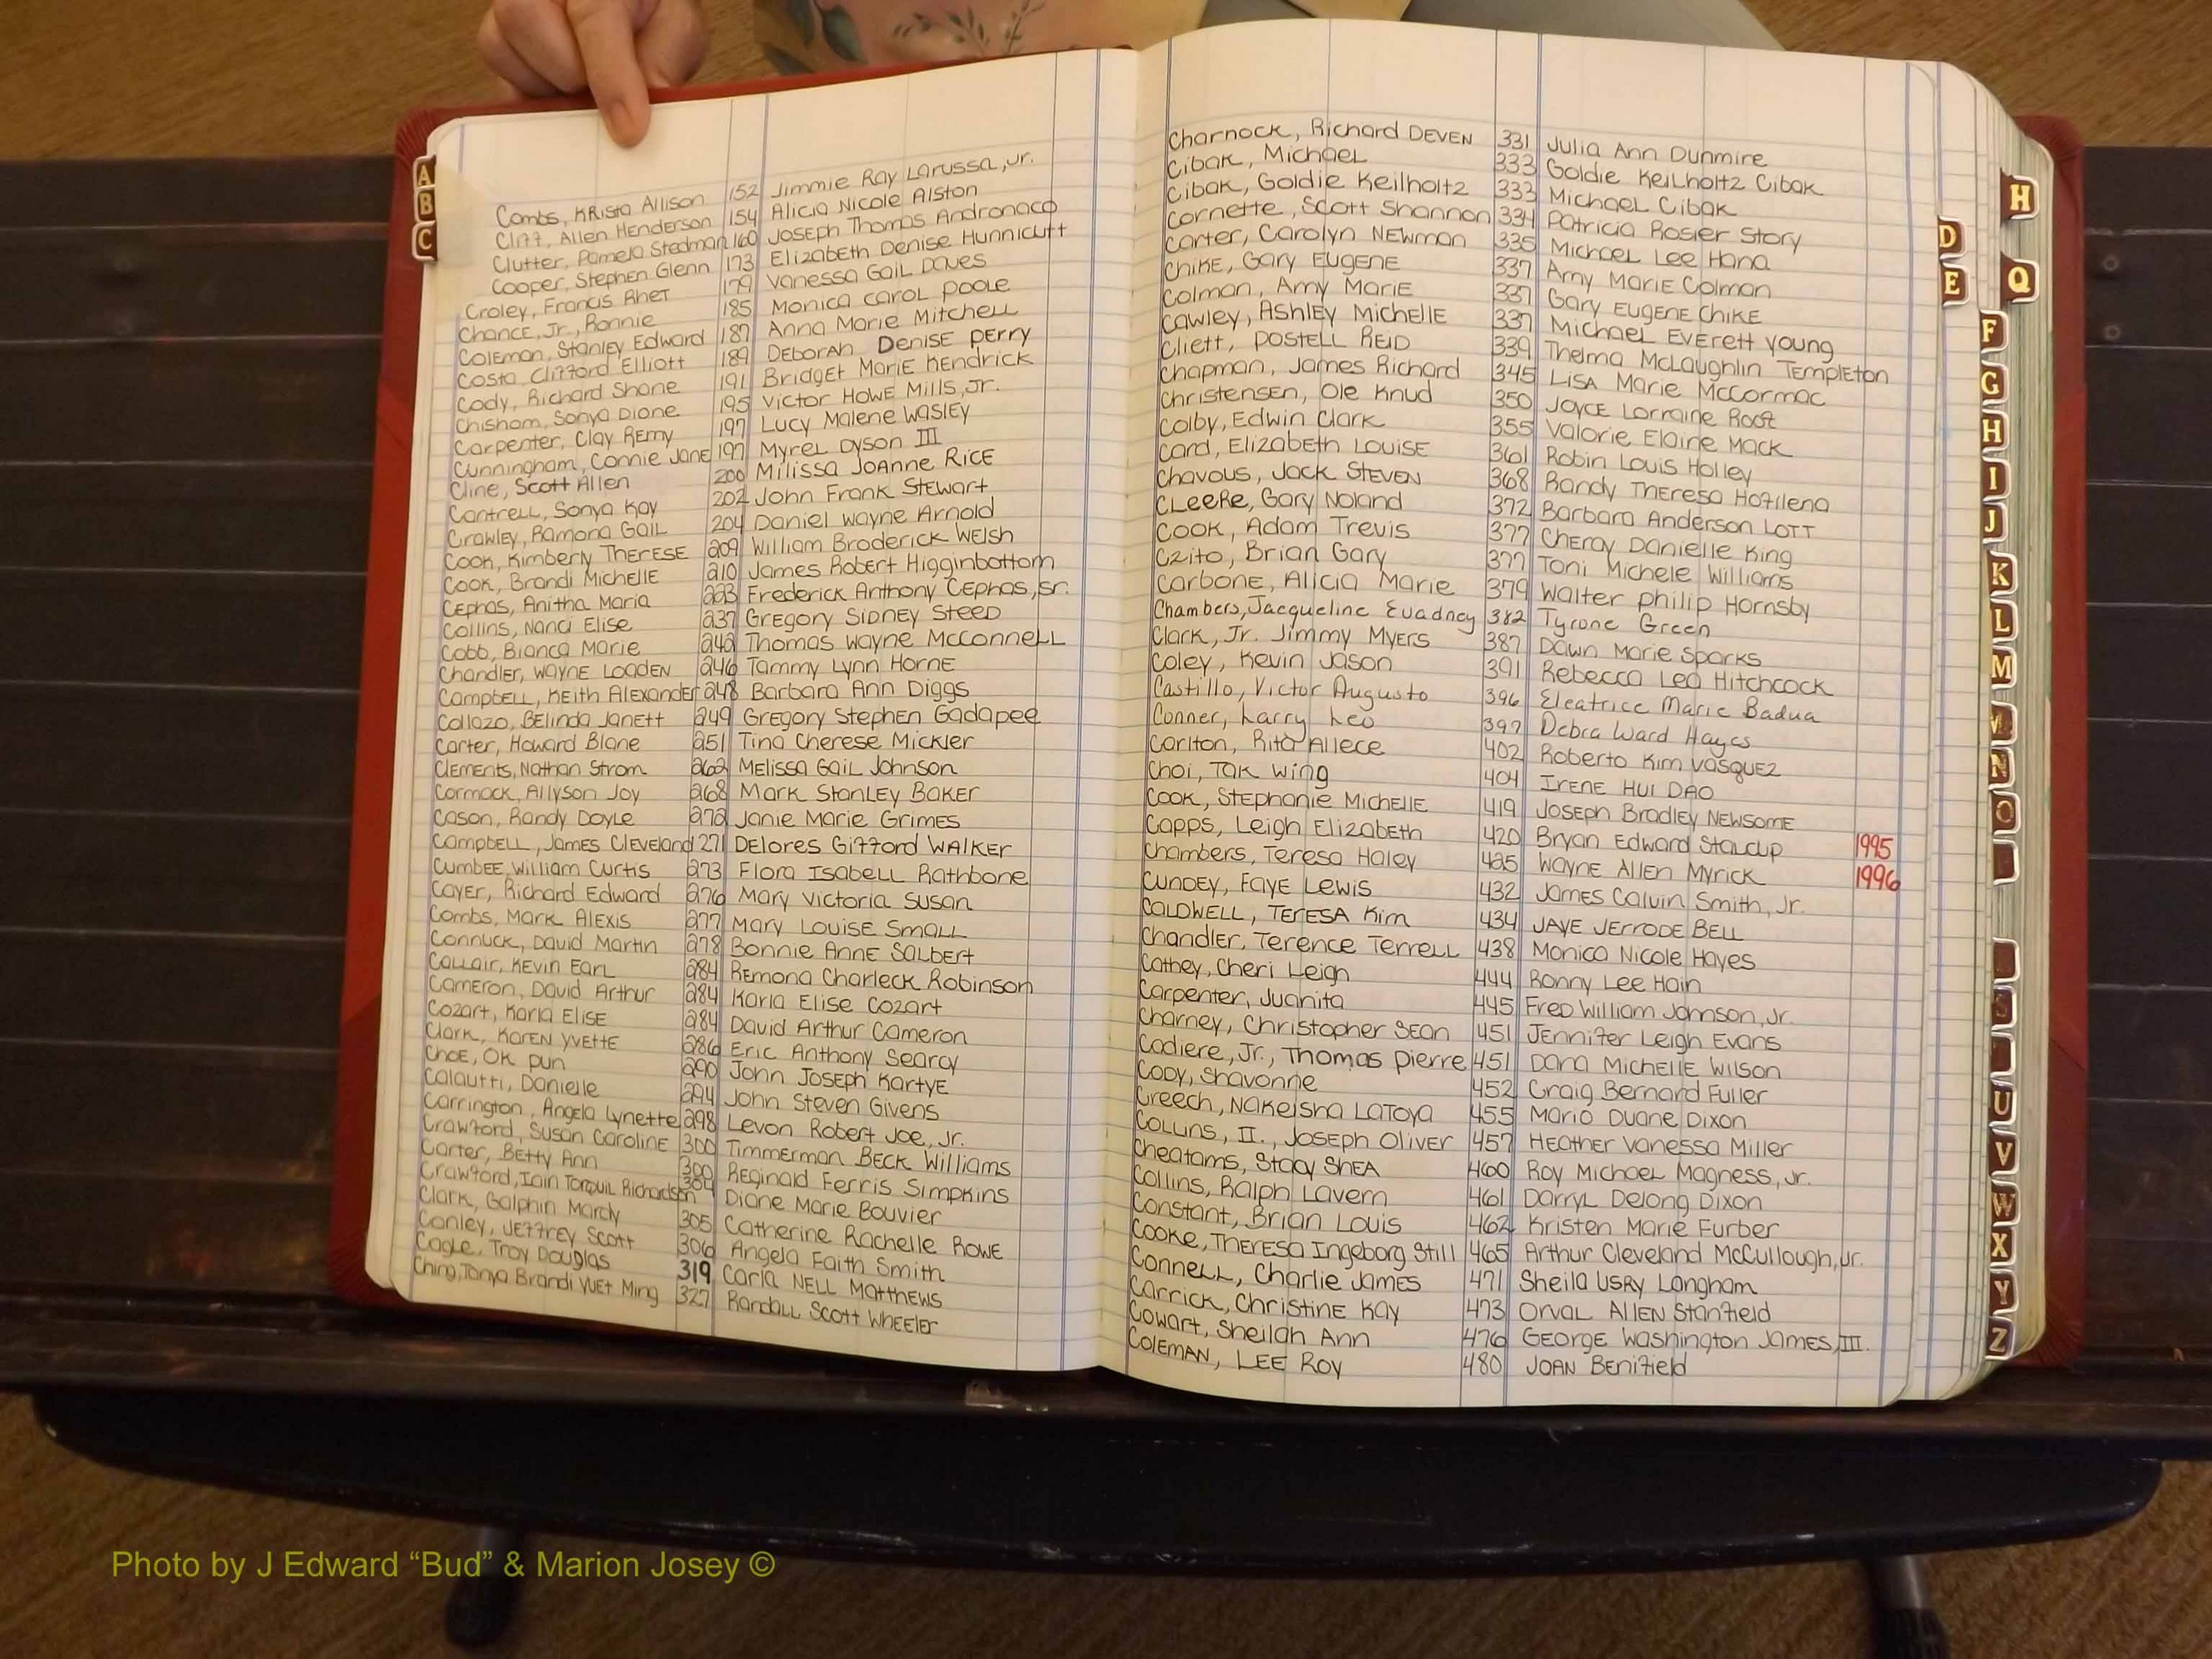 Combs, Krista Allison 152 Jimmie Ray Larussa, Jr.
Cliff, Allen Henderson 154 Alicia Nicole Alston
Clutter, Pamela Stedman 160 Joseph Thomas Andronaco
Cooper, Stephen Glenn 173 Elizabeth Denise Hunnicutt
Croley, Francis Rhet 179 Vanessa Gail Daves
Chance, Jr., Ronnie 185 Monica Carol Poole
Coleman, Stanley Edward 187 Anna Marie Mitchell
Costa, Clifford Elliott 189 Deborah Denise Perry
Cody, Richard Shane 191 Bridget Marie Kendrick
Chisham, Sonya Diane 195 Victor Howe Mills, Jr.
Carpenter, Clay Remy 197 Lucy Malene Wasley
Cunningham, Connie Jane 197 Myrel Dyson III
Cline, Scott Allen 200 Milissa JoAnne Rice
Cantrell, Sonya Kay 202 John Frank Stewart
Crawley, Ramona Gail 204 Daniel Wayne Arnold
Cook, Kimberly Therese 209 William Broderick Welsh
Cook, Brandi Michelle 210 James Robert Higginbottom
Cephas, Anitha Maria 223 Frederick Anthony Cephas, Sr.
Collins, Nanci Elise 237 Gregory Sidney Steed
Cobb, Bianca Marie 242 Thomas Wayne McConnell
Chandler, Wayne Loaden 246 Tammy Lynn Horne
Campbell, Keith Alexander 248 Barbara Ann Diggs
Collazo, Belinda Janett 249 Gregory Stephen Gadapee
Carter, Howard Blane 251 Tina Cherese Mickler
Clements, Nathan Strom 262 Melissa Gail Johnson
Cormack, Allyson Joy 268 Mark Stanley Baker
Cason, Randy Doyle 270 Janie Marie Grimes
Campbell, James Cleveland 271 Delores Gifford Walker
Cumbee, William Curtis 273 Flora Isabell Rathbone
Cayer, Richard Edward 276 Mary Victoria Susan
Combs, Mark Alexis 277 Mary Louise Small
Connuck, David Martin 278 Bonnie Anne Salbert
Callair, Kevin Earl 284 Remona Charleck Robinson
Cameron, David Arthur 284 Karla Elise Cozart
Cozart, Karla Elise 284 David Arthur Cameron
Clark, Karen Yvette 286 Eric Anthony Searcy
Choe, Ok Pun 290 John Joseph Kartye
Calautti, Danielle 294 John Steven Givens
Carrington, Angela Lynette 298 Levon Robert Joe, Jr.
Crawford, Susan Caroline 300 Timmerman Beck Williams
Carter, Betty Ann 300 Reginald Ferris Simpkins
Crawford, Iain Torquil Richardson 304 Diane Marie Bouvier
Clark, Galphin Mardy 305 Catherine Rachelle Rowe
Conley, Jeffrey Scott 306 Angela Faith Smith
Cagle, Troy Douglas 319 Carla Nell Matthews
Ching, Tanya Brandi Yuet Ming 327 Randall Scott Wheeler
Charnock, Richard Deven 331 Julia Ann Dunmire
Cibak, Michael 333 Goldie Keilholtz Cibak
Cibak, Goldie Keilholtz 333 Michael Cibak
Cornette, Scott Shannon 334 Patricia Rosier Story
Carter, Carolyn Newman 335 Michael Lee Hana
Chike, Gary Eugene 337 Amy Marie Colman
Colman, Amy Marie 337 Gary Eugene Chike
Cawley, Ashley Michelle 337 Michael Everett Young
Cliett, Postell Reid 339 Thelma McLaughlin Templeton
Chapman, James Richard 345 Lisa Marie McCormac
Christensen, Ole Knud 350 Joyce Lorraine Root
Colby, Edwin Clark 355 Valorie Elaine Mack
Card, Elizabeth Louise 361 Robin Louis Holley
Chavous, Jack Steven 368 Randy Theresa Hofilena
Cleere, Gary Noland 372 Barbara Anderson Lott
Cook, Adam Trevis 377 Cheray Danielle King
Czito, Brian Gary 377 Toni Michele Williams
Carbone, Alicia Marie 379 Walter Philip Hornsby
Chambers, Jacqueline Euadney 382 Tyrone Green
Clark, Jr. Jimmy Myers 387 Dawn Marie Sparks
Coley, Kevin Jason 391 Rebecca Lea Hitchcock
Castillo, Victor Augusto 396 Eleatrice Marie Badua
Conner, Larry Leo 397 Debra Ward Hayes
Carlton, Rita Allece 402 Roberto Kim Vasquez
Choi, Tak Wing 404 Irene Hui Dao
Cook, Stephanie Michelle 419 Joseph Bradley Newsome
Capps, Leigh Elizabeth 420 Bryan Edward Stalcup 1995
Chambers, Teresa Haley 425 Wayne Allen Myrick 1996
Cundey, Faye Lewis 432 James Calvin Smith, Jr.
Caldwell, Teresa Kim 434 Jaye Jerrode Bell
Chandler, Terence Terrell 438 Monica Nicole Hayes
Cathey, Cheri Leigh 444 Ronny Lee Hain
Carpenter, Juanita 445 Fred William Johnson, Jr.
Charney, Christopher Sean 451 Jennifer Leigh Evans
Cadiere, Jr., Thomas Pierre 451 Dana Michelle Wilson
Cody, Shavonne 452 Craig Bernard Fuller
Creech, Nakeisha LaToya 455 Mario Duane Dixon
Collins, II., Joseph Oliver 457 Heather Vanessa Miller
Cheatams, Stacy Shea 460 Roy Michael Magness, Jr.
Collins, Ralph Lavern 461 Darryl Delong Dixon
Constant, Brian Louis 462 Kristen Marie Furber
Cooke, Theresa Ingeborg Still 465 Arthur Cleveland McCullough, Jr.
Connell, Charlie James 471 Sheila Usry Langham
Carrick, Christine Kay 473 Orval Allen Stanfield
Cowart, Sheilah Ann 476 George Washington James, III.
Coleman, Lee Roy 480 Joan Benifield
A
B
C
D
E
F
G
H
I
J
K
L
M
N
O
U
V
W
X
Y
Z
H
Q
Photo by J Edward “Bud” & Marion Josey ©